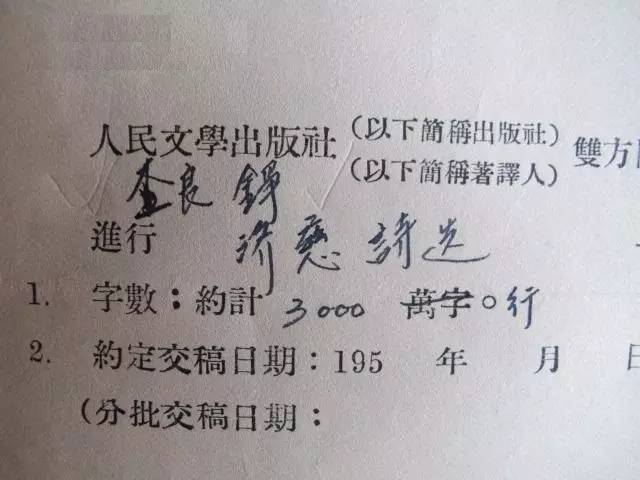 人民文學出版社 (以下簡稱出版社) 雙方
查良錚 (以下簡稱著譯人)
進行 济慈詩选
1. 字數：約計 3000 萬字。行
2. 約定交稿日期：195 年 月 日
(分批交稿日期：